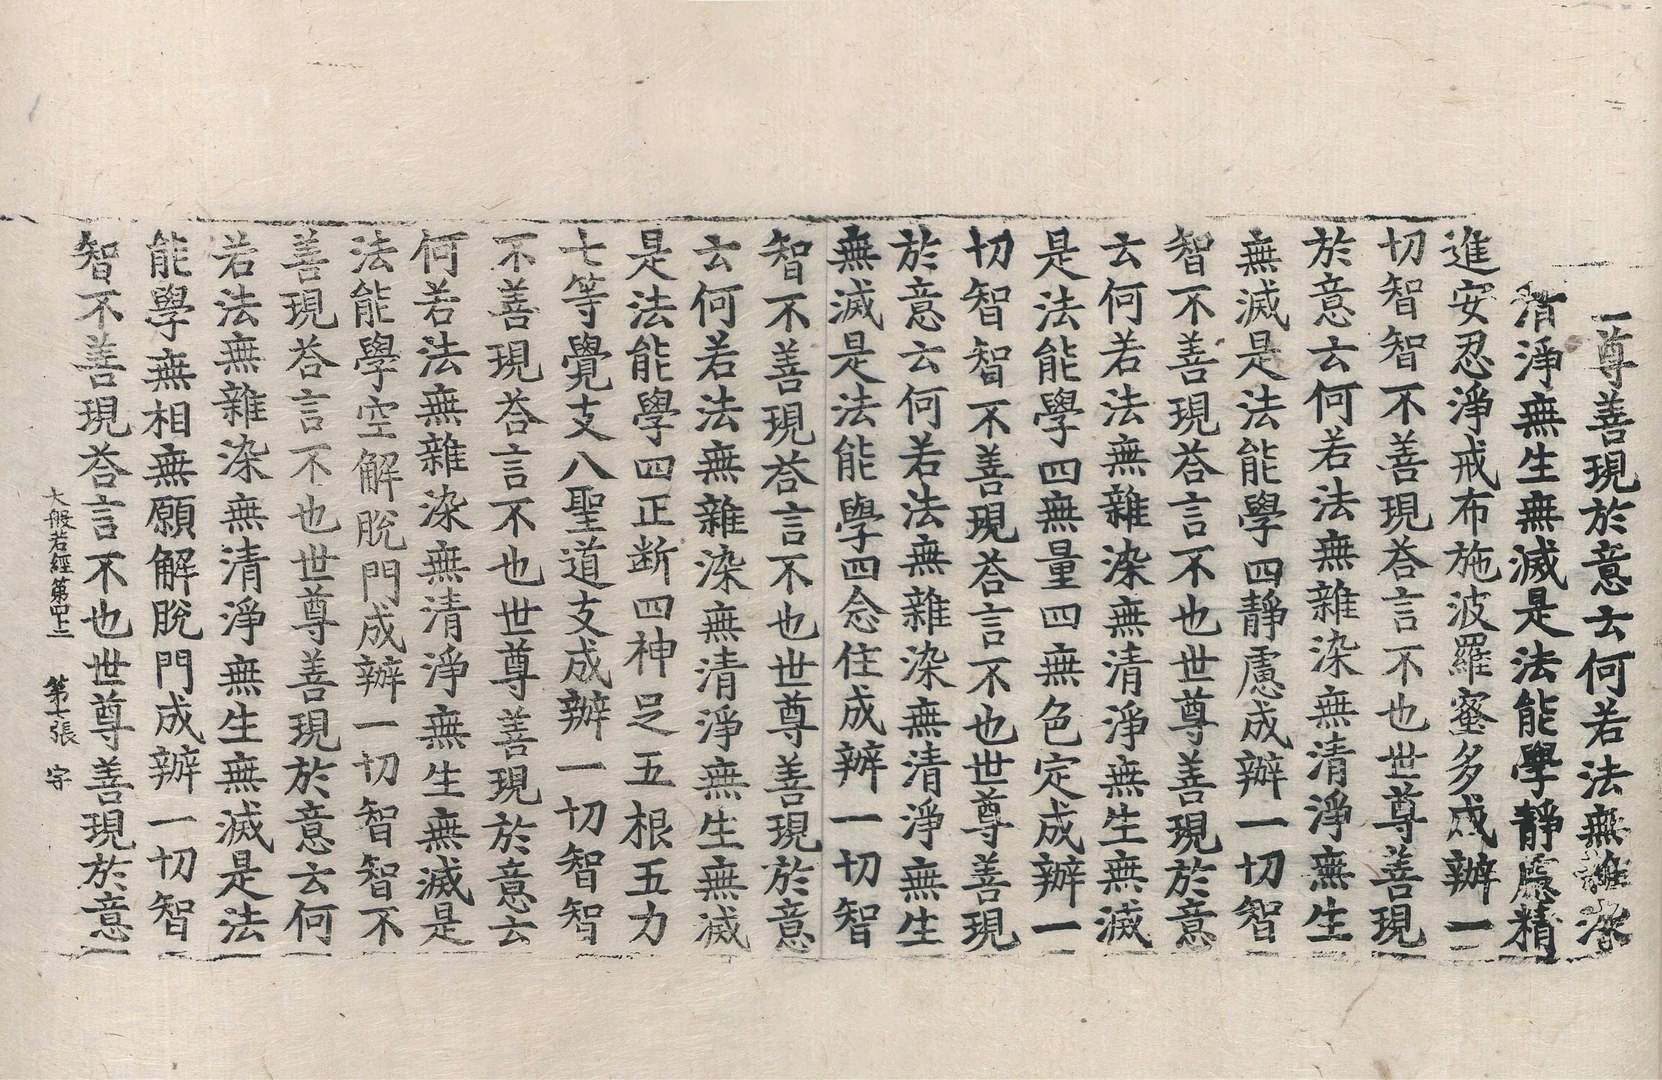 尊善現於意云何若法無雜染
清淨無生無滅是法能學靜慮精
進安忍淨戒布施波羅蜜多成辦一
切智智不善現荅言不也世尊善現
於意云何若法無雜染無清淨無生
無滅是法能學四靜慮成辦一切智
智不善現荅言不也世尊善現於意
云何若法無雜染無清淨無生無滅
是法能學四無量四無色定成辦一
切智智不善現荅言不也世尊善現
於意云何若法無雜染無清淨無生
無滅是法能學四念住成辦一切智
智不善現荅言不也世尊善現於意
云何若法無雜染無清淨無生無滅
是法能學四正断四神足五根五力
七等覺支八聖道支成辦一切智智
不善現荅言不也世尊善現於意云
何若法無雜染無清淨無生無滅是
法能學空解脫門成辦一切智智不
善現荅言不也世尊善現於意云何
若法無雜染無清淨無生無滅是法
能學無相無願解脫門成辦一切智
智不善現荅言不也世尊善現於意
大般若經第四十二 第七張 字